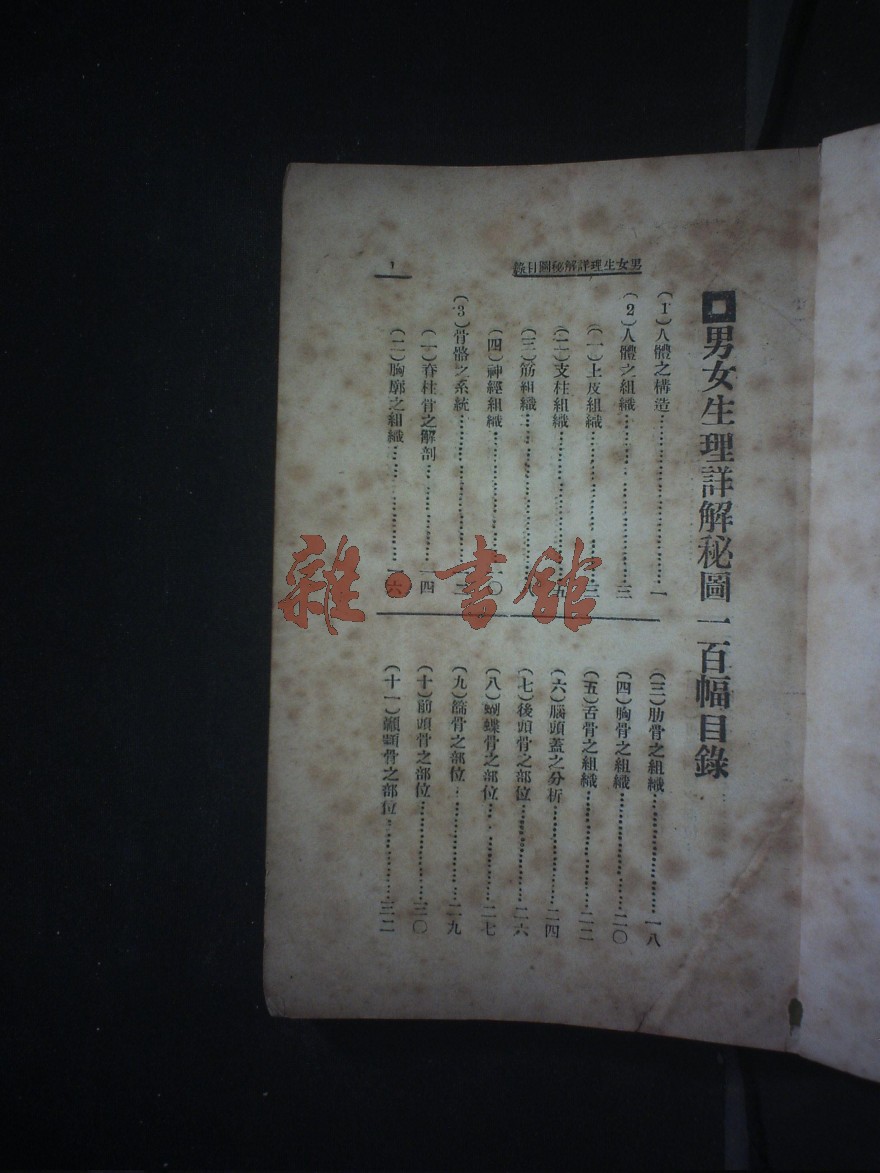 男女生理詳解秘圖目錄
■男女生理詳解秘圖一百幅目錄
(1)人體之構造…………一
(2)人體之組織…………三
(一)上皮組織…………三
(二)支柱組織…………五
(三)筋組織…………
(四)神經組織…………一〇
(3)骨骼之系統…………一三
(一)脊柱骨之解剖…………一四
(二)胸廓之組織…………一六
(三)肋骨之組織…………一八
(四)胸骨之組織…………二〇
(五)舌骨之組織…………二二
(六)腦頭蓋之分析…………二四
(七)後頭骨之部位…………二六
(八)蝴蝶骨之部位…………二七
(九)篩骨之部位…………二九
(十)前頭骨之部位…………三〇
(十一)顳顬骨之部位…………三二
1
雜·書館